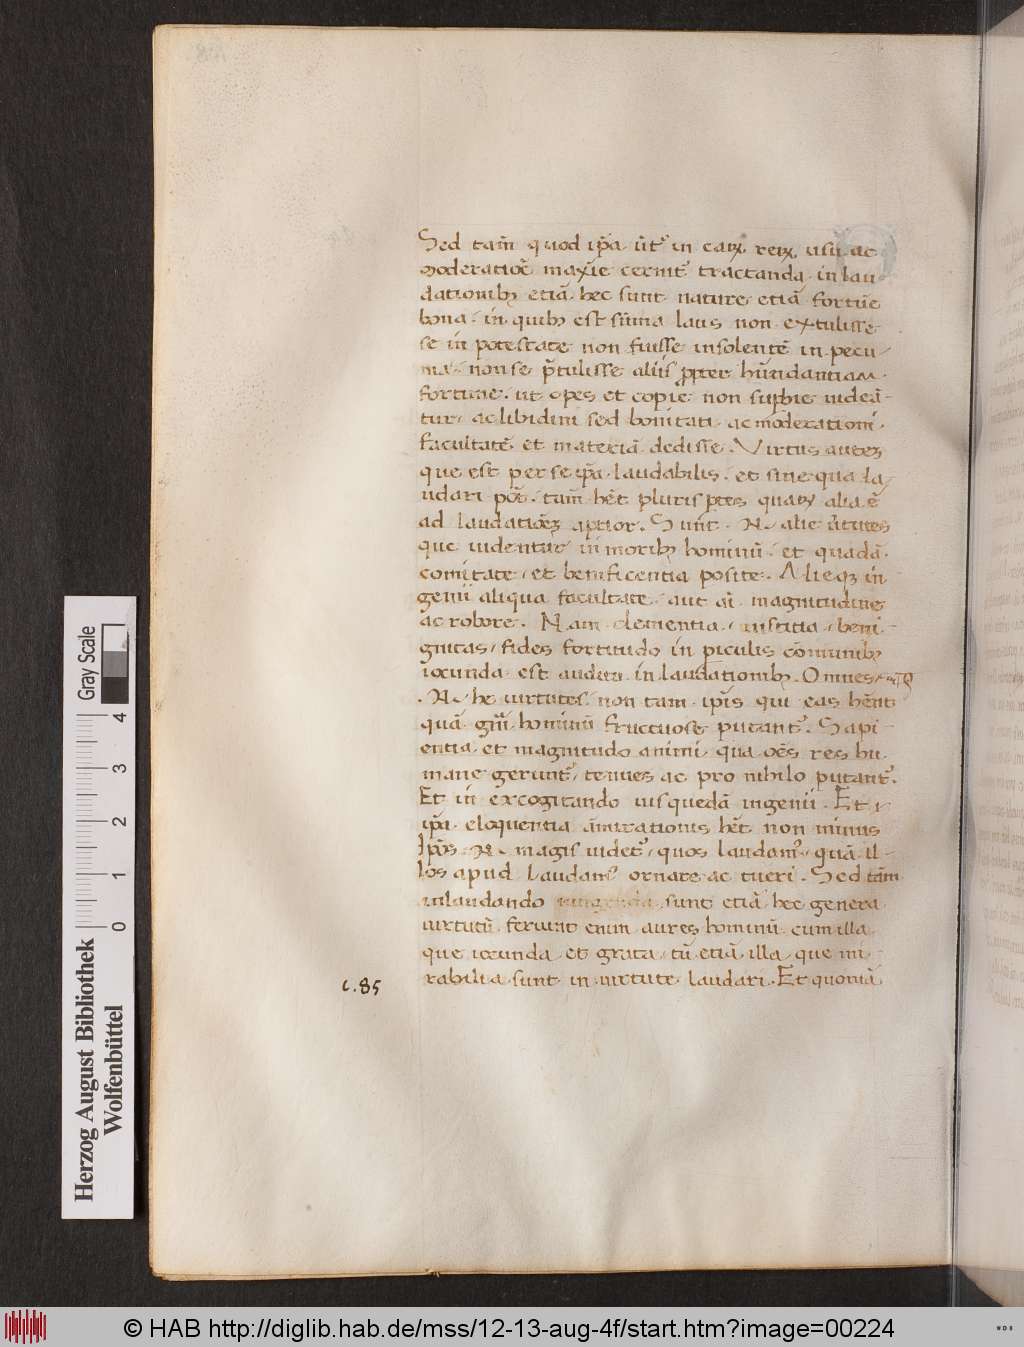 Sed tam̄ quod ip̄a ūt᷒ in earꝝ rerꝝ usu ac
moderatiōe maxīe cernit᷒ tractanda in lau
dationibꝫ etiā hec sunt nature etiā fortūe
bona. in quibꝫ est sūma laus non extulisse
se in potestate non fuisse insolentē in pecu
nia. non se p̄tulisse aliis ꝓpter hūndantiam.
fortune. ut opes et copie non suꝑbie uideā-
tur, ac libidini sed bonitati ac moderationi.
facultatē et materiā dedisse. Virtus autez
que est per se ip̄a laudabilis. et sine qua la,
udari pōt. tam̄ hēt pluris ptes quaꝝ alia ē
ad laudatiōeꝫ aptior. Sunt. N. alie ūtutes
que uidentur in moribꝫ hominū et quadā.
comitate, et beneficentia posite. Alieqꝫ in
genii aliqua facultate. aut aī magnitudine
ac robore. Nam clementia, iustitia, beni
gnitas, fides fortitudo in ꝑiculis cōmunibꝫ
iocunda est auditu in laudationibꝫ. Omnes
.N. he uirtutes, non tam ip̄is qui eas hēnt
quā gn̄i hominū fructuose putant᷒. Sapi-
entia et magnitudo animi qua oēs res hu.
mane gerunt᷒, tenues ac pro nihilo putant᷒.
Et in excogitando uis quedā ingenii. Et i
ip̄a eloquentia āmirationis hēt non minus
Ip̄os. N. magis uidet᷒, quos laudam᷒, quā il-
los apud laudam᷒ ornare ac tueri. Sed tam̄
in laudando sunt etiā hec genera
uirtutū. ferunt enim aures hominū cum illa
que iocunda et grata, tū etiā illa, que mi-
rabilia sunt in uirtute laudari. Et quoniā
c. 85
Gray Scale
0 1 2 3 4
Herzog August Bibliothek
Wolfenbüttel
© HAB http://diglib.hab.de/mss/12-13-aug-4f/start.htm?image=00224